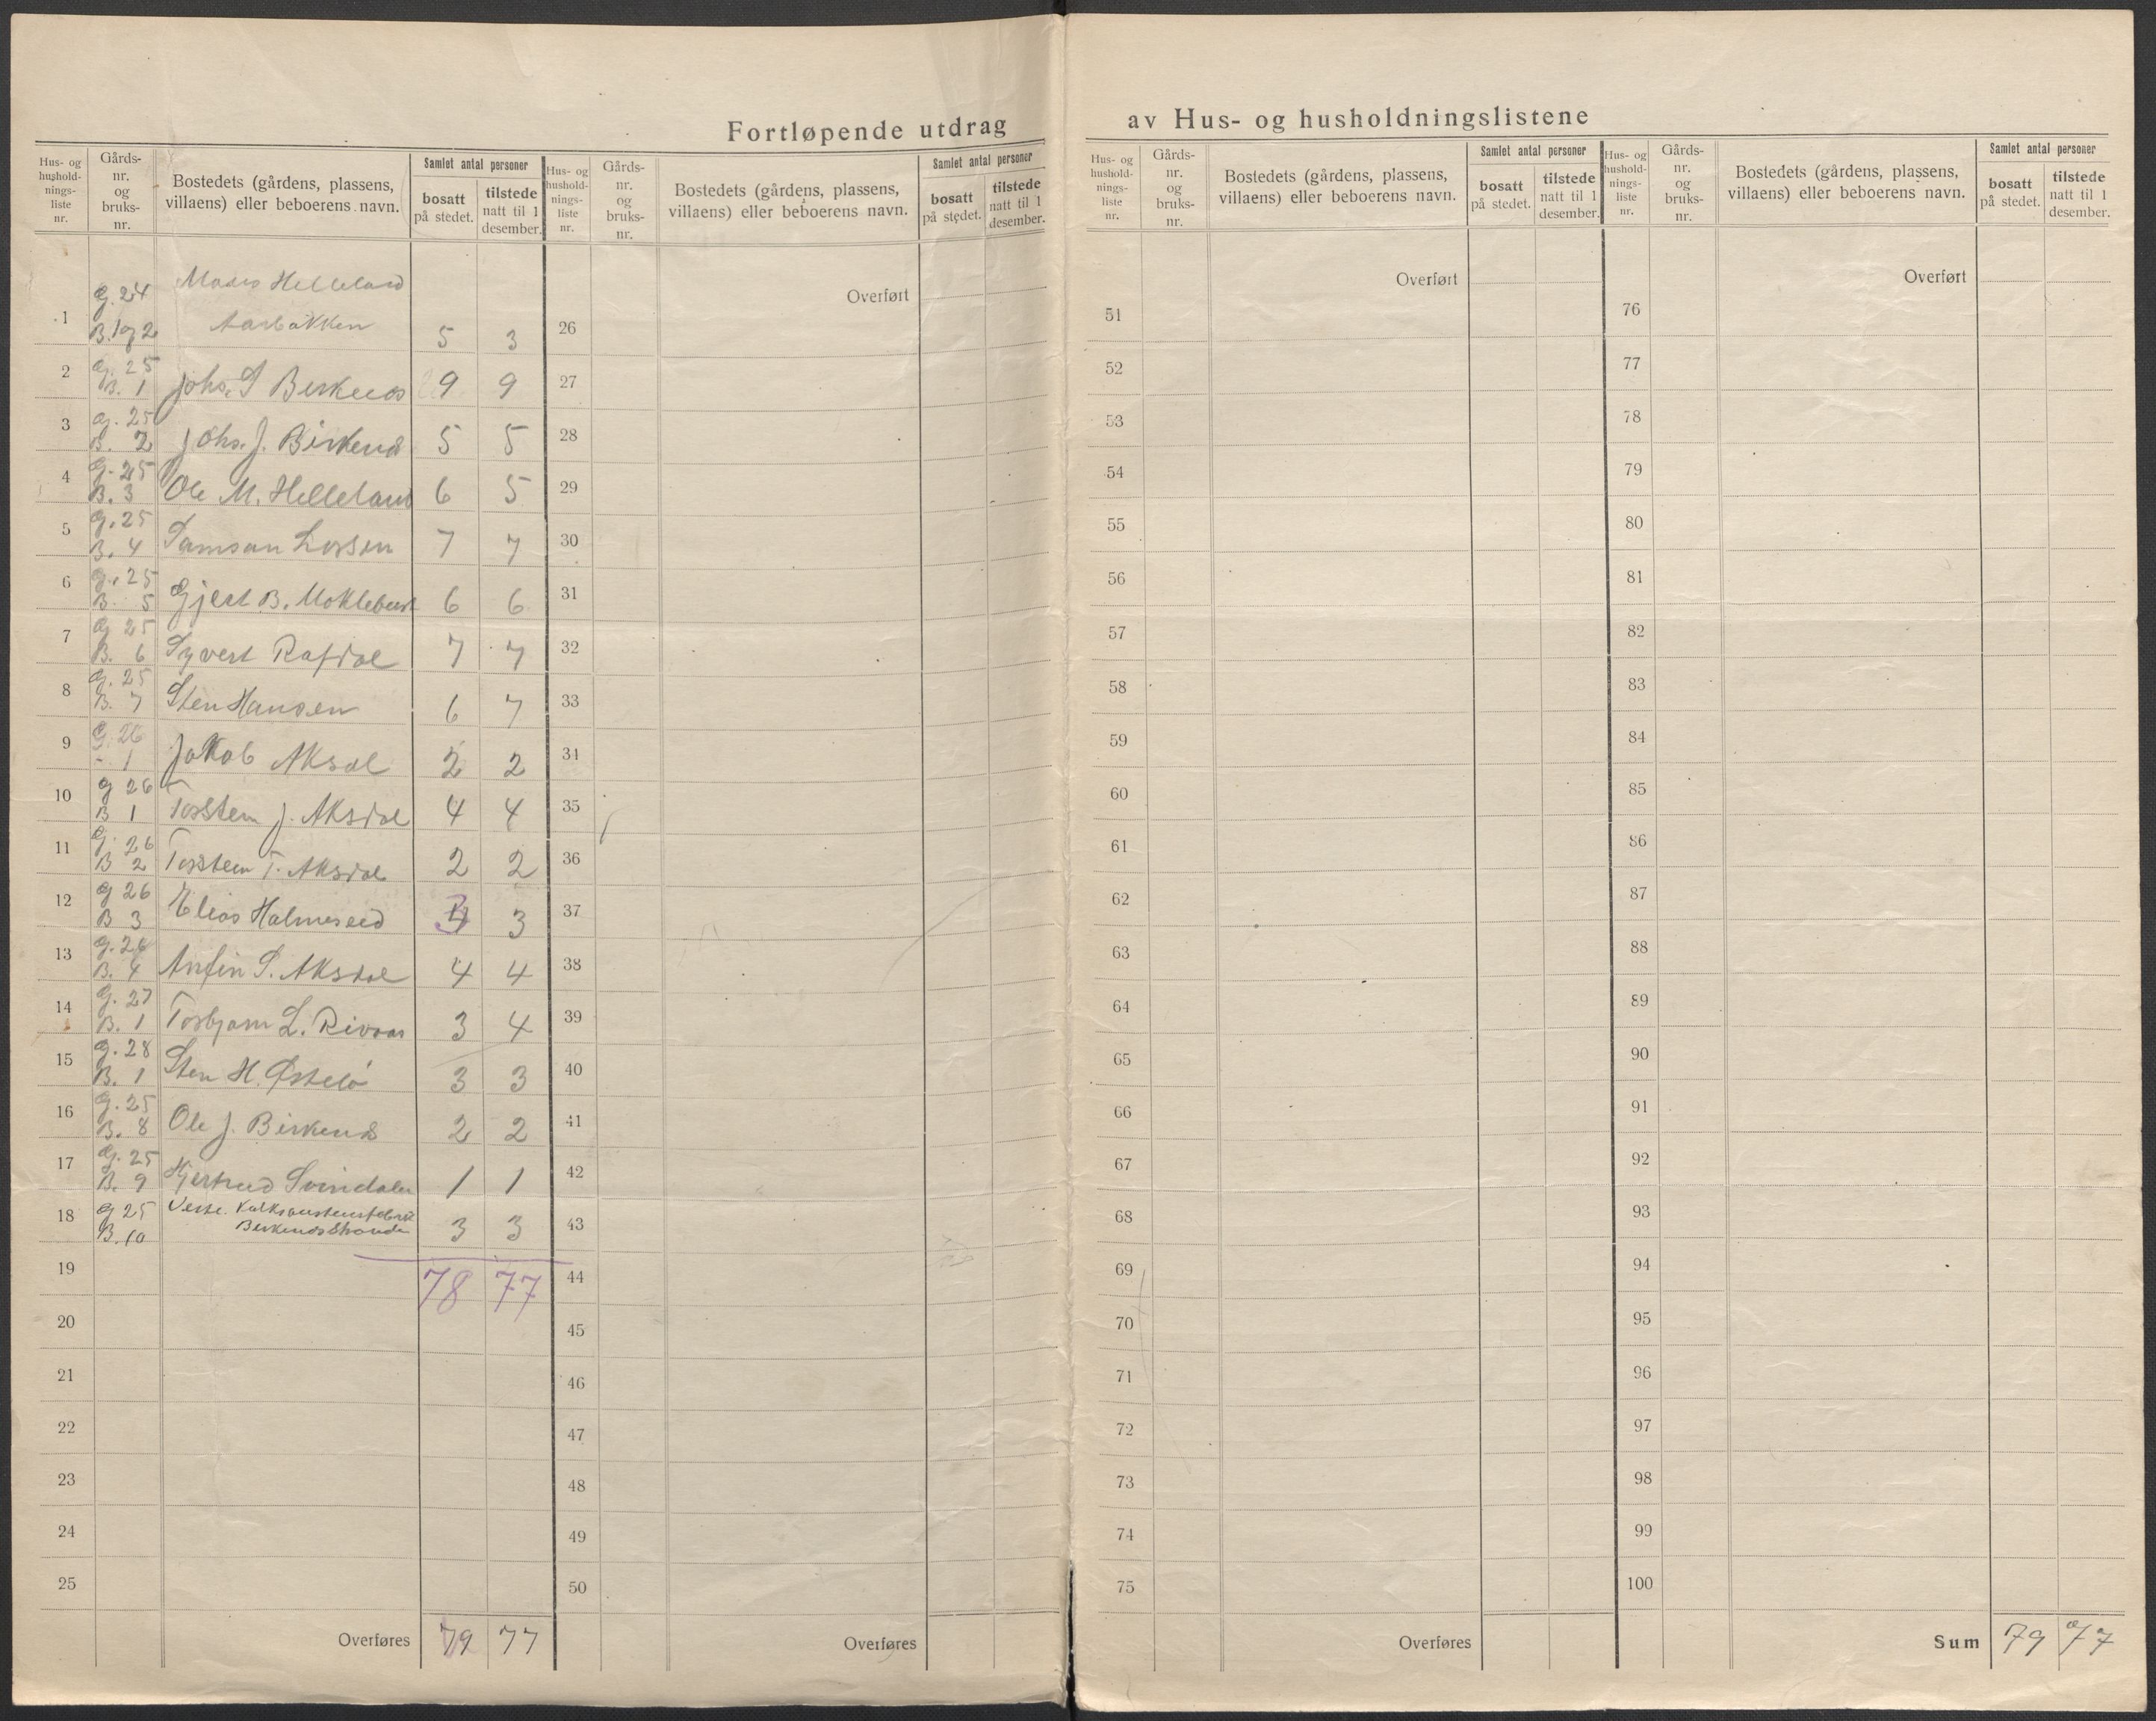 Fortløpende utdrag av Hus- og husholdningslistene
Hus- og hushold- nings- liste nr.
Gårds- nr. og bruks- nr.
Bostedets (gårdens, plassens, villaens) eller beboerens navn.
Samlet antal personer
bosatt på stedet.
tilstede natt til 1 desember.
Hus- og hushold- nings- liste nr.
Gårds- nr. og bruks- nr.
Bostedets (gårdens, plassens, villaens) eller beboerens navn.
Samlet antal personer
bosatt på stedet.
tilstede natt til 1 desember.
1 G. 24 B. 1 og 2 Mads Helleland Aarbakken 5 3
2 G. 25 B. 1 Johs. S Birkenes 9 9
3 G. 25 B. 2 Johs. J. Birkenes 5 5
4 G. 25 B. 3 Ole M. Helleland 6 5
5 G. 25 B. 4 Samson Larsen 7 7
6 G. 25 B. 5 Gjert B. Moklebust 6 6
7 G. 25 B. 6 Syvert Rafdal 7 7
8 G. 25 B. 7 Sten Hansen 6 7
9 G. 26 - 1 Jakob Aksal 2 2
10 G 26 B 1 Torstein J. Aksdal 4 4
11 G. 26 B 2 Torstein T. Aksdal 2 2
12 G 26 B 3 Elias Halmeseed 3
13 G. 26 B. 4 Anfin S. Aksdal 4 4
14 G. 27 B. 1 Torbjørn L. Rivaas 3 4
15 G. 28 B. 1 Sten H. Østebø 3 3
16 G. 25 B. 8 Ole J. Birkenes 2 2
17 G. 25 B. 9 Gjertrud Svindalen 1 1
18 G 25 B. 10 3 3
19 78 77
20
21
22
23
24
25
Overføres 79 77
Overført
26
27
28
29
30
31
32
33
34
35
36
37
38
39
40
41
42
43
44
45
46
47
48
49
50
Overføres
Hus- og hushold- nings- liste nr.
Gårds- nr. og bruks- nr.
Bostedets (gårdens, plassens, villaens) eller beboerens navn.
Samlet antal personer
bosatt på stedet.
tilstede natt til 1 desember.
Overført
51
52
53
54
55
56
57
58
59
60
61
62
63
64
65
66
67
68
69
70
71
72
73
74
75
Overføres
Hus- og hushold- nings- liste nr.
Gårds- nr. og bruks- nr.
Bostedets (gårdens, plassens, villaens) eller beboerens navn.
Samlet antal personer
bosatt på stedet.
tilstede natt til 1 desember.
Overført
76
77
78
79
80
81
82
83
84
85
86
87
88
89
90
91
92
93
94
95
96
97
98
99
100
Sum 79 77